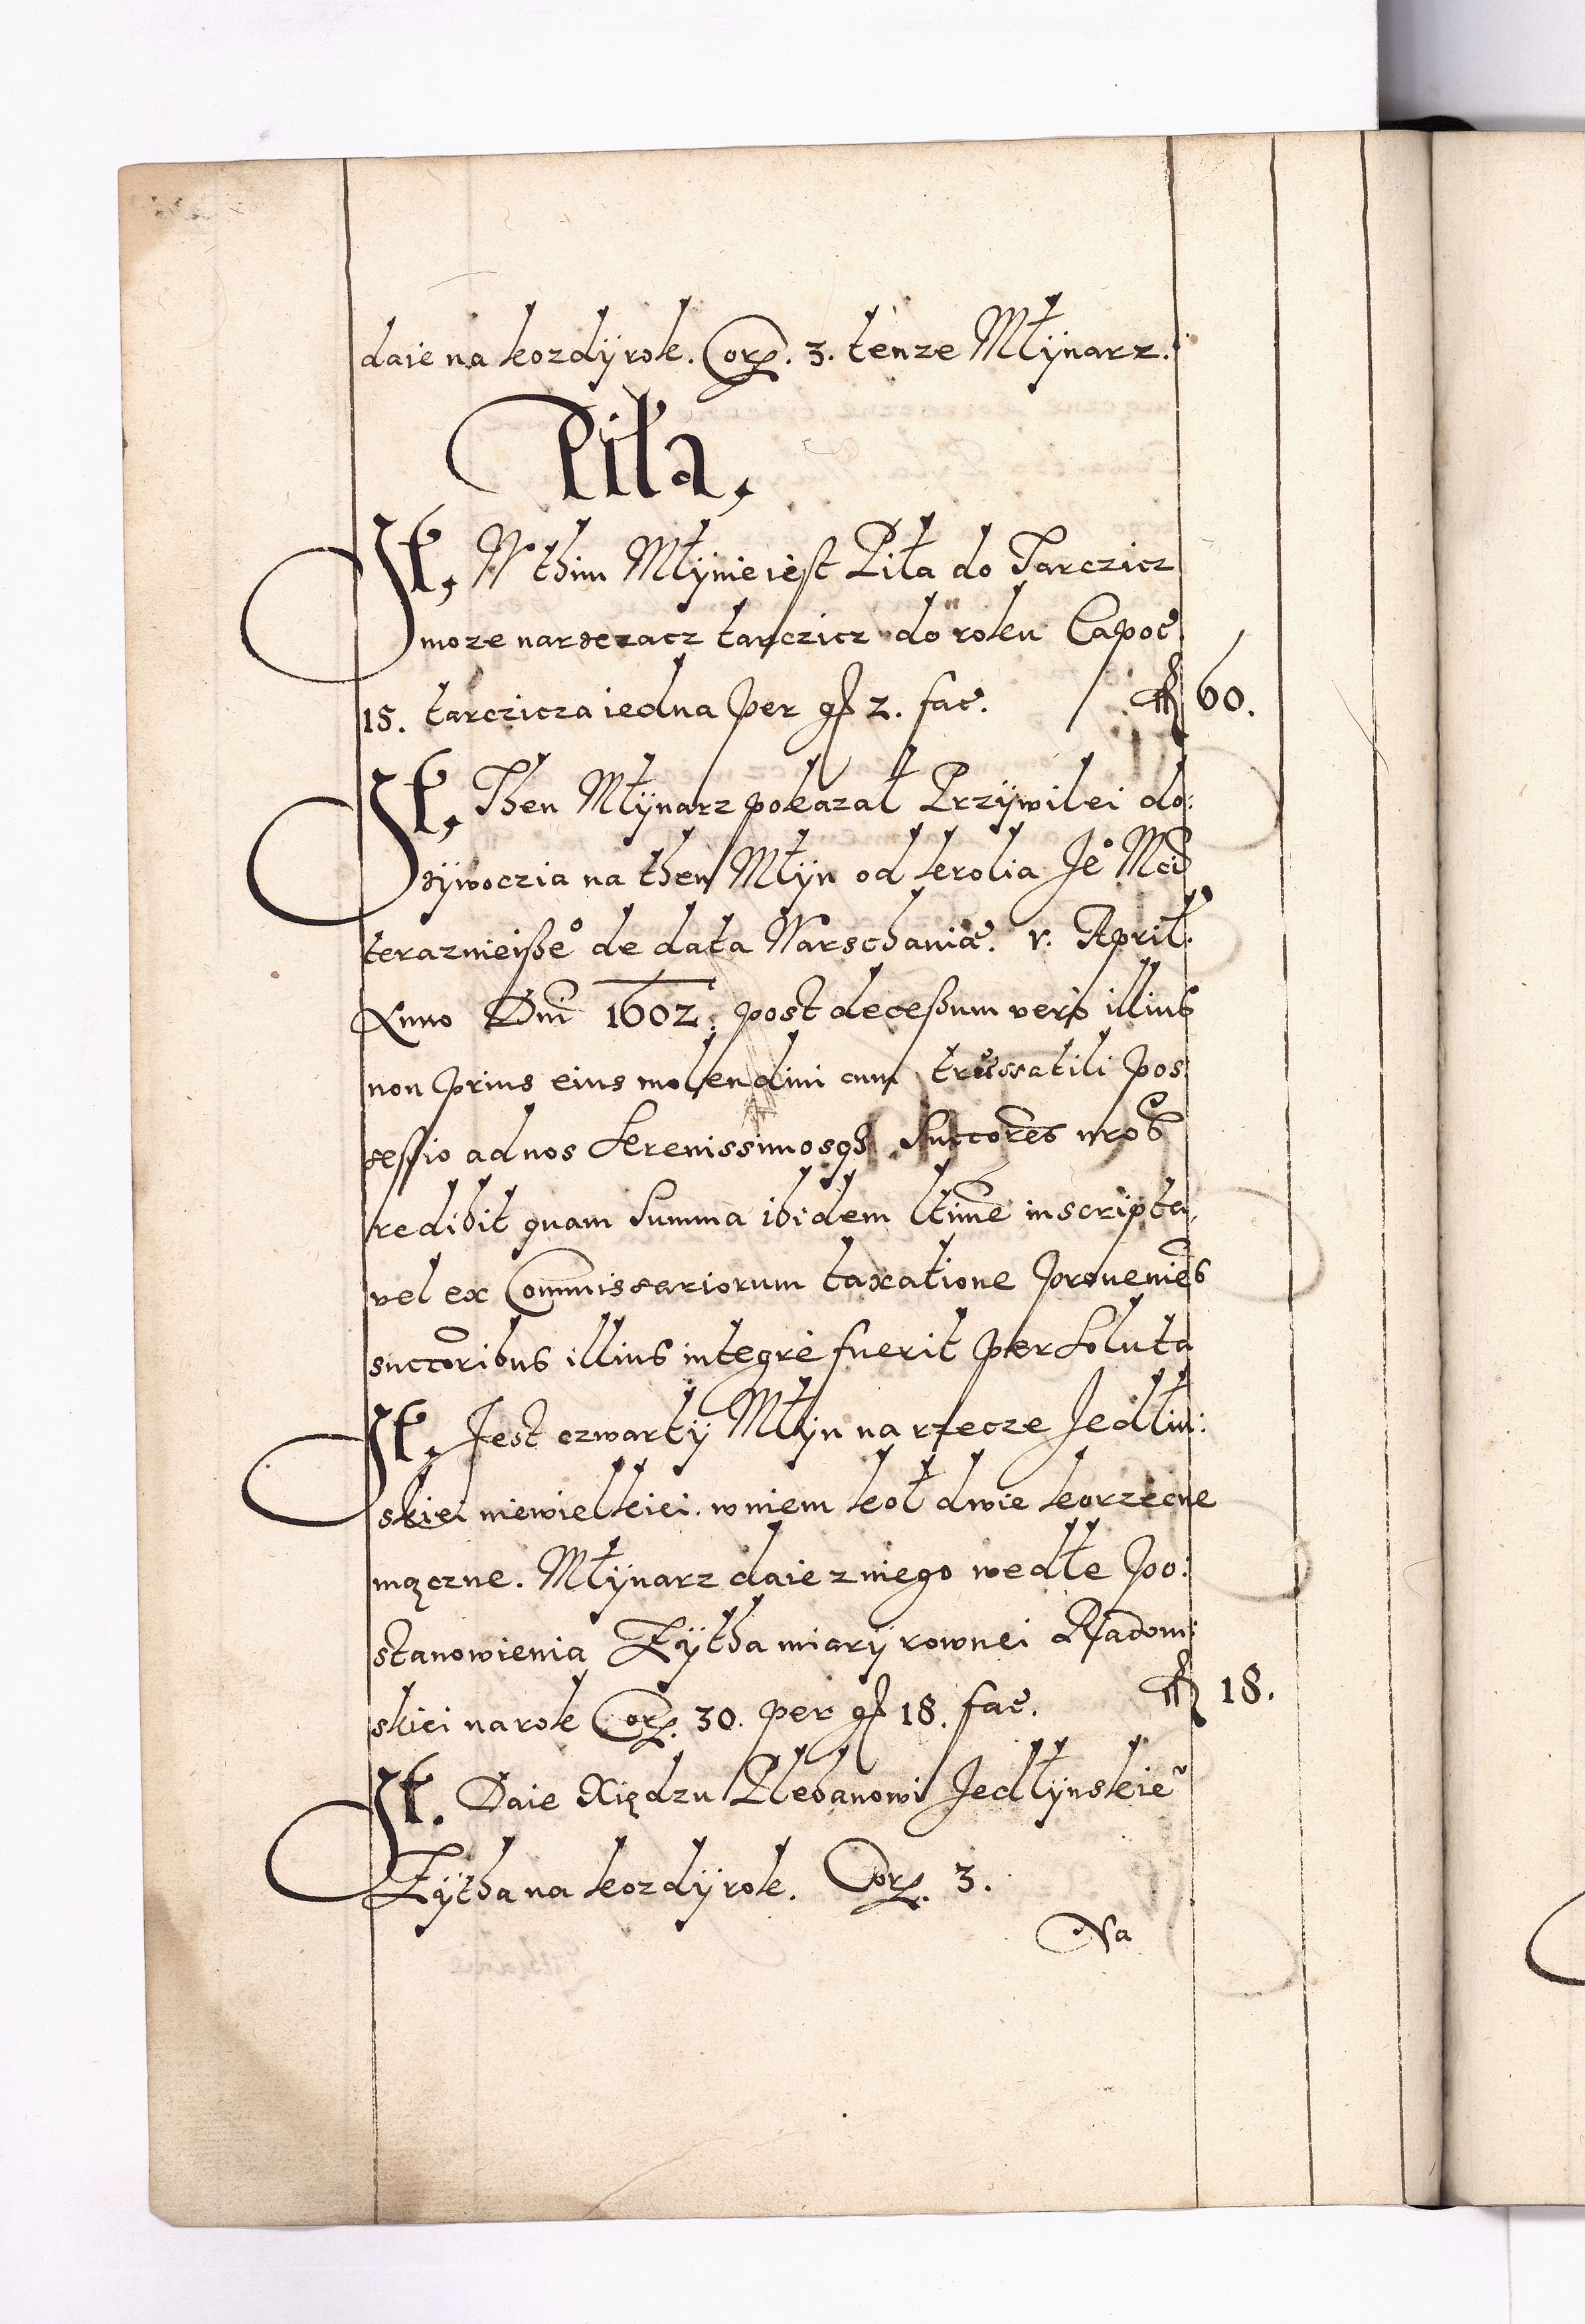 daie na kozdÿ rok. Corz. 3. tenze Młÿnarz.
Piła,
It, W thim Młÿnie iest Piła do Tarczicz
moze narzezacz tarczicz do roku Capoe.
15. tarczicza iedna per gr 2. fac. fl 60.
It, Then Młÿnarz pokazał Przÿwilei do:
zÿwoczia na then Młÿn od krolia Je° Mci
teraznieiße° de data Warschaviæ. v. April.
Anno Dni 1602: post deceßum vero illius
non prius eius molendini cum trussatili pos:
sessio ad nos Serenissimosq3 Succores nros
redibit quam Summa ibidem ltime inscripta,
vel ex Commissariorum taxatione provenies
succoribus illius integrè fuerit persoluta
It, Jest czwartÿ Młÿn na rzecze Jedlin:
skiei niewielkiei. w niem koł dwie korzecne
mączne. Młÿnarz daie z niego wedłe po:
stanowienia Zÿtha miarÿ rownei Radom:
skiei na rok Corz. 30. per gr 18. fac. fl 18.
It. Daie Xiędzu Plebanowi Jedlÿnskie~
Zÿtha na kozdÿ rok. Corz. 3.
Na